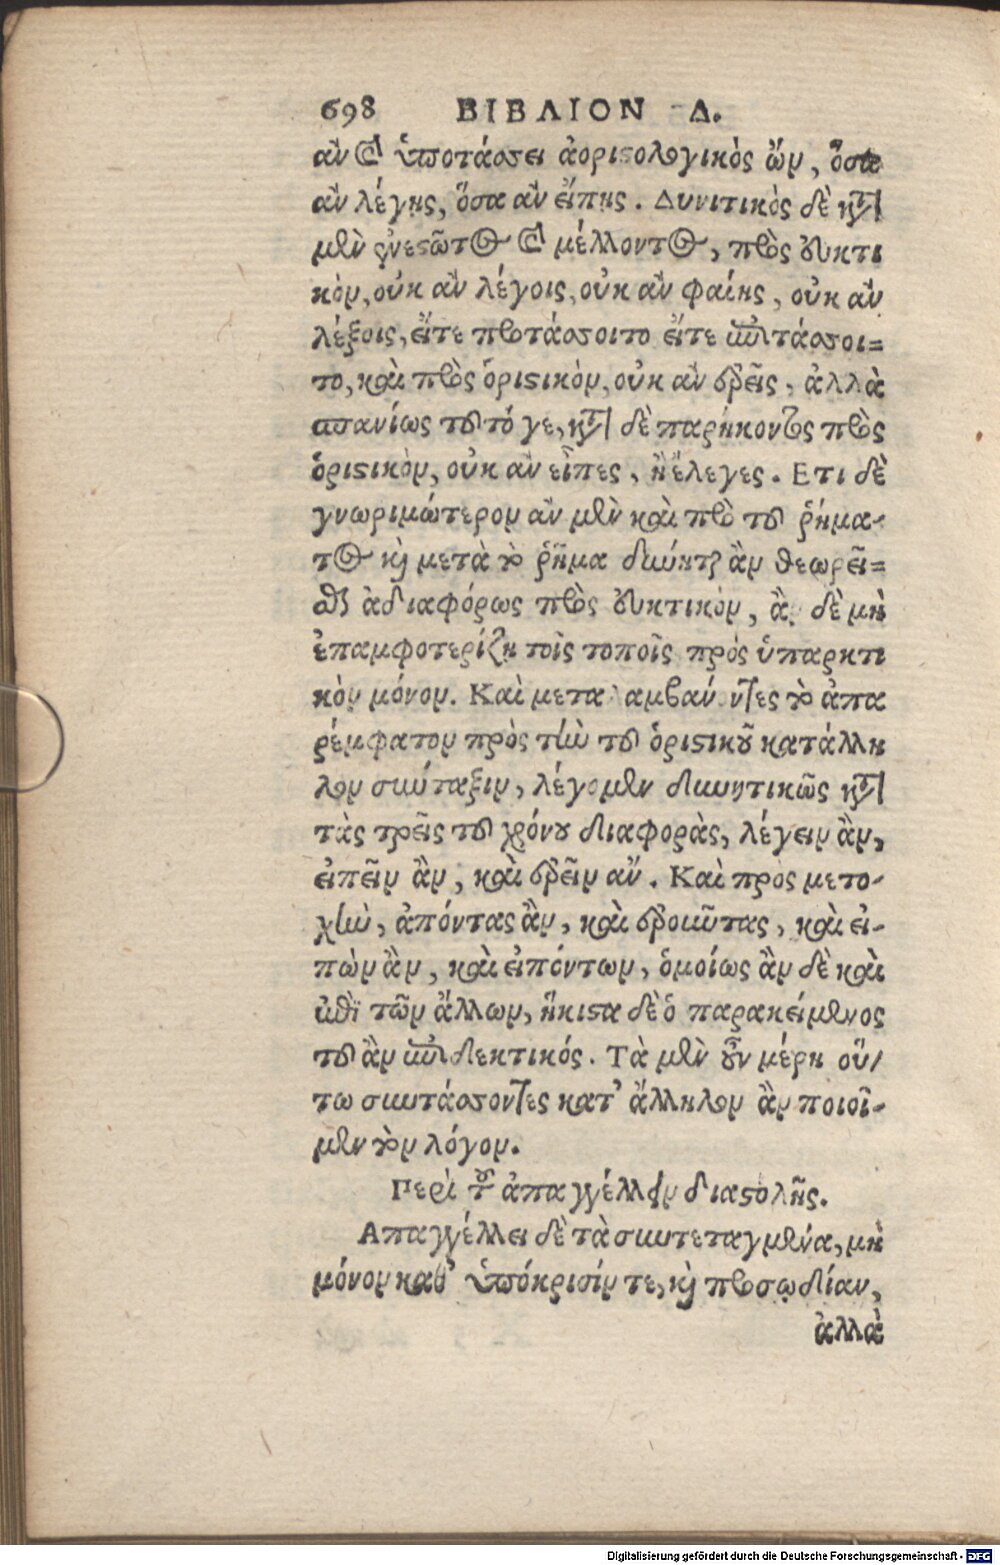 698 ΒΙΒΛΙΟΝ Δ.
ἂν καὶ ὑποτάσσει ἀοριστολογικὸς ὤν, ὅσα
ἂν λέγῃς, ὅσα ἂν εἴπῃς. Δυνιτικὸς δὲ κατὰ
μὲν ἐνεστῶτος καὶ μέλλοντος, πρὸς εὐκτι
κὸν, οὐκ ἂν λέγοις, οὐκ ἂν φαίης, οὐκ ἂν
λέξοις, εἴτε προτάσσοιτο εἴτε ὑποτάσσοι=
το, καὶ πρὸς ὁριστικὸν, οὐκ ἂν ἐρεῖς, ἀλλὰ
σπανίως τοῦτό γε, κατὰ δὲ παρῄκοντος πρὸς
ὁριστικὸν, οὐκ ἂν εἶπες, ἢ ἔλεγες. Ετι δὲ
γνωριμώτερον ἂν μὲν καὶ πρὸ τοῦ ῥήμα-
τος καὶ μετὰ τὸ ῥῆμα δύνηται ἂν θεωρεῖ=
σθαι ἀδιαφόρως πρὸς εὐκτικὸν, ἂν δὲ μὴ
ἐπαμφοτερίζῃ τοῖς τοποῖς πρὸς ὑπαρκτι
κὸν μόνον. Καὶ μεταλαμβάνοντες τὸ ἀπα
ρέμφατον πρὸς τὴν τοῦ ὁριστικοῦ κατάλλη
λον σύνταξιν, λέγομεν δυνητικῶς κατὰ
τὰς τρεῖς τοῦ χρόνου διαφορὰς, λέγειν ἂν,
εἰπεῖν ἂν, καὶ ἐρεῖν ἄν. Καὶ πρὸς μετο-
χὴν, ἀπόντας ἂν, καὶ ἐροιῦτας, καὶ εἰ-
πὼν ἂν, καὶ εἰπόντων, ὁμοίως ἂν δὲ καὶ
ἐπὶ τῶν ἄλλων, ἥκιστα δὲ ὁ παρακείμενος
τοῦ ἂν ἐπιδεκτικός. Τὰ μὲν οὖν μέρη οὕ/
τω συντάσσοντες κατ' ἄλληλον ἂν ποιοῖ-
μεν τὸν λόγον.
Περὶ τοῦ ἀπαγγέλλειν διαστολῆς.
Απαγγέλλει δὲ τὰ συντεταγμένα, μὴ
μόνον καθ' ὑπόκρισίν τε, καὶ προσῳδίαν,
ἀλλὰ
Digitalisierung gefördert durch die Deutsche Forschungsgemeinschaft - DFG